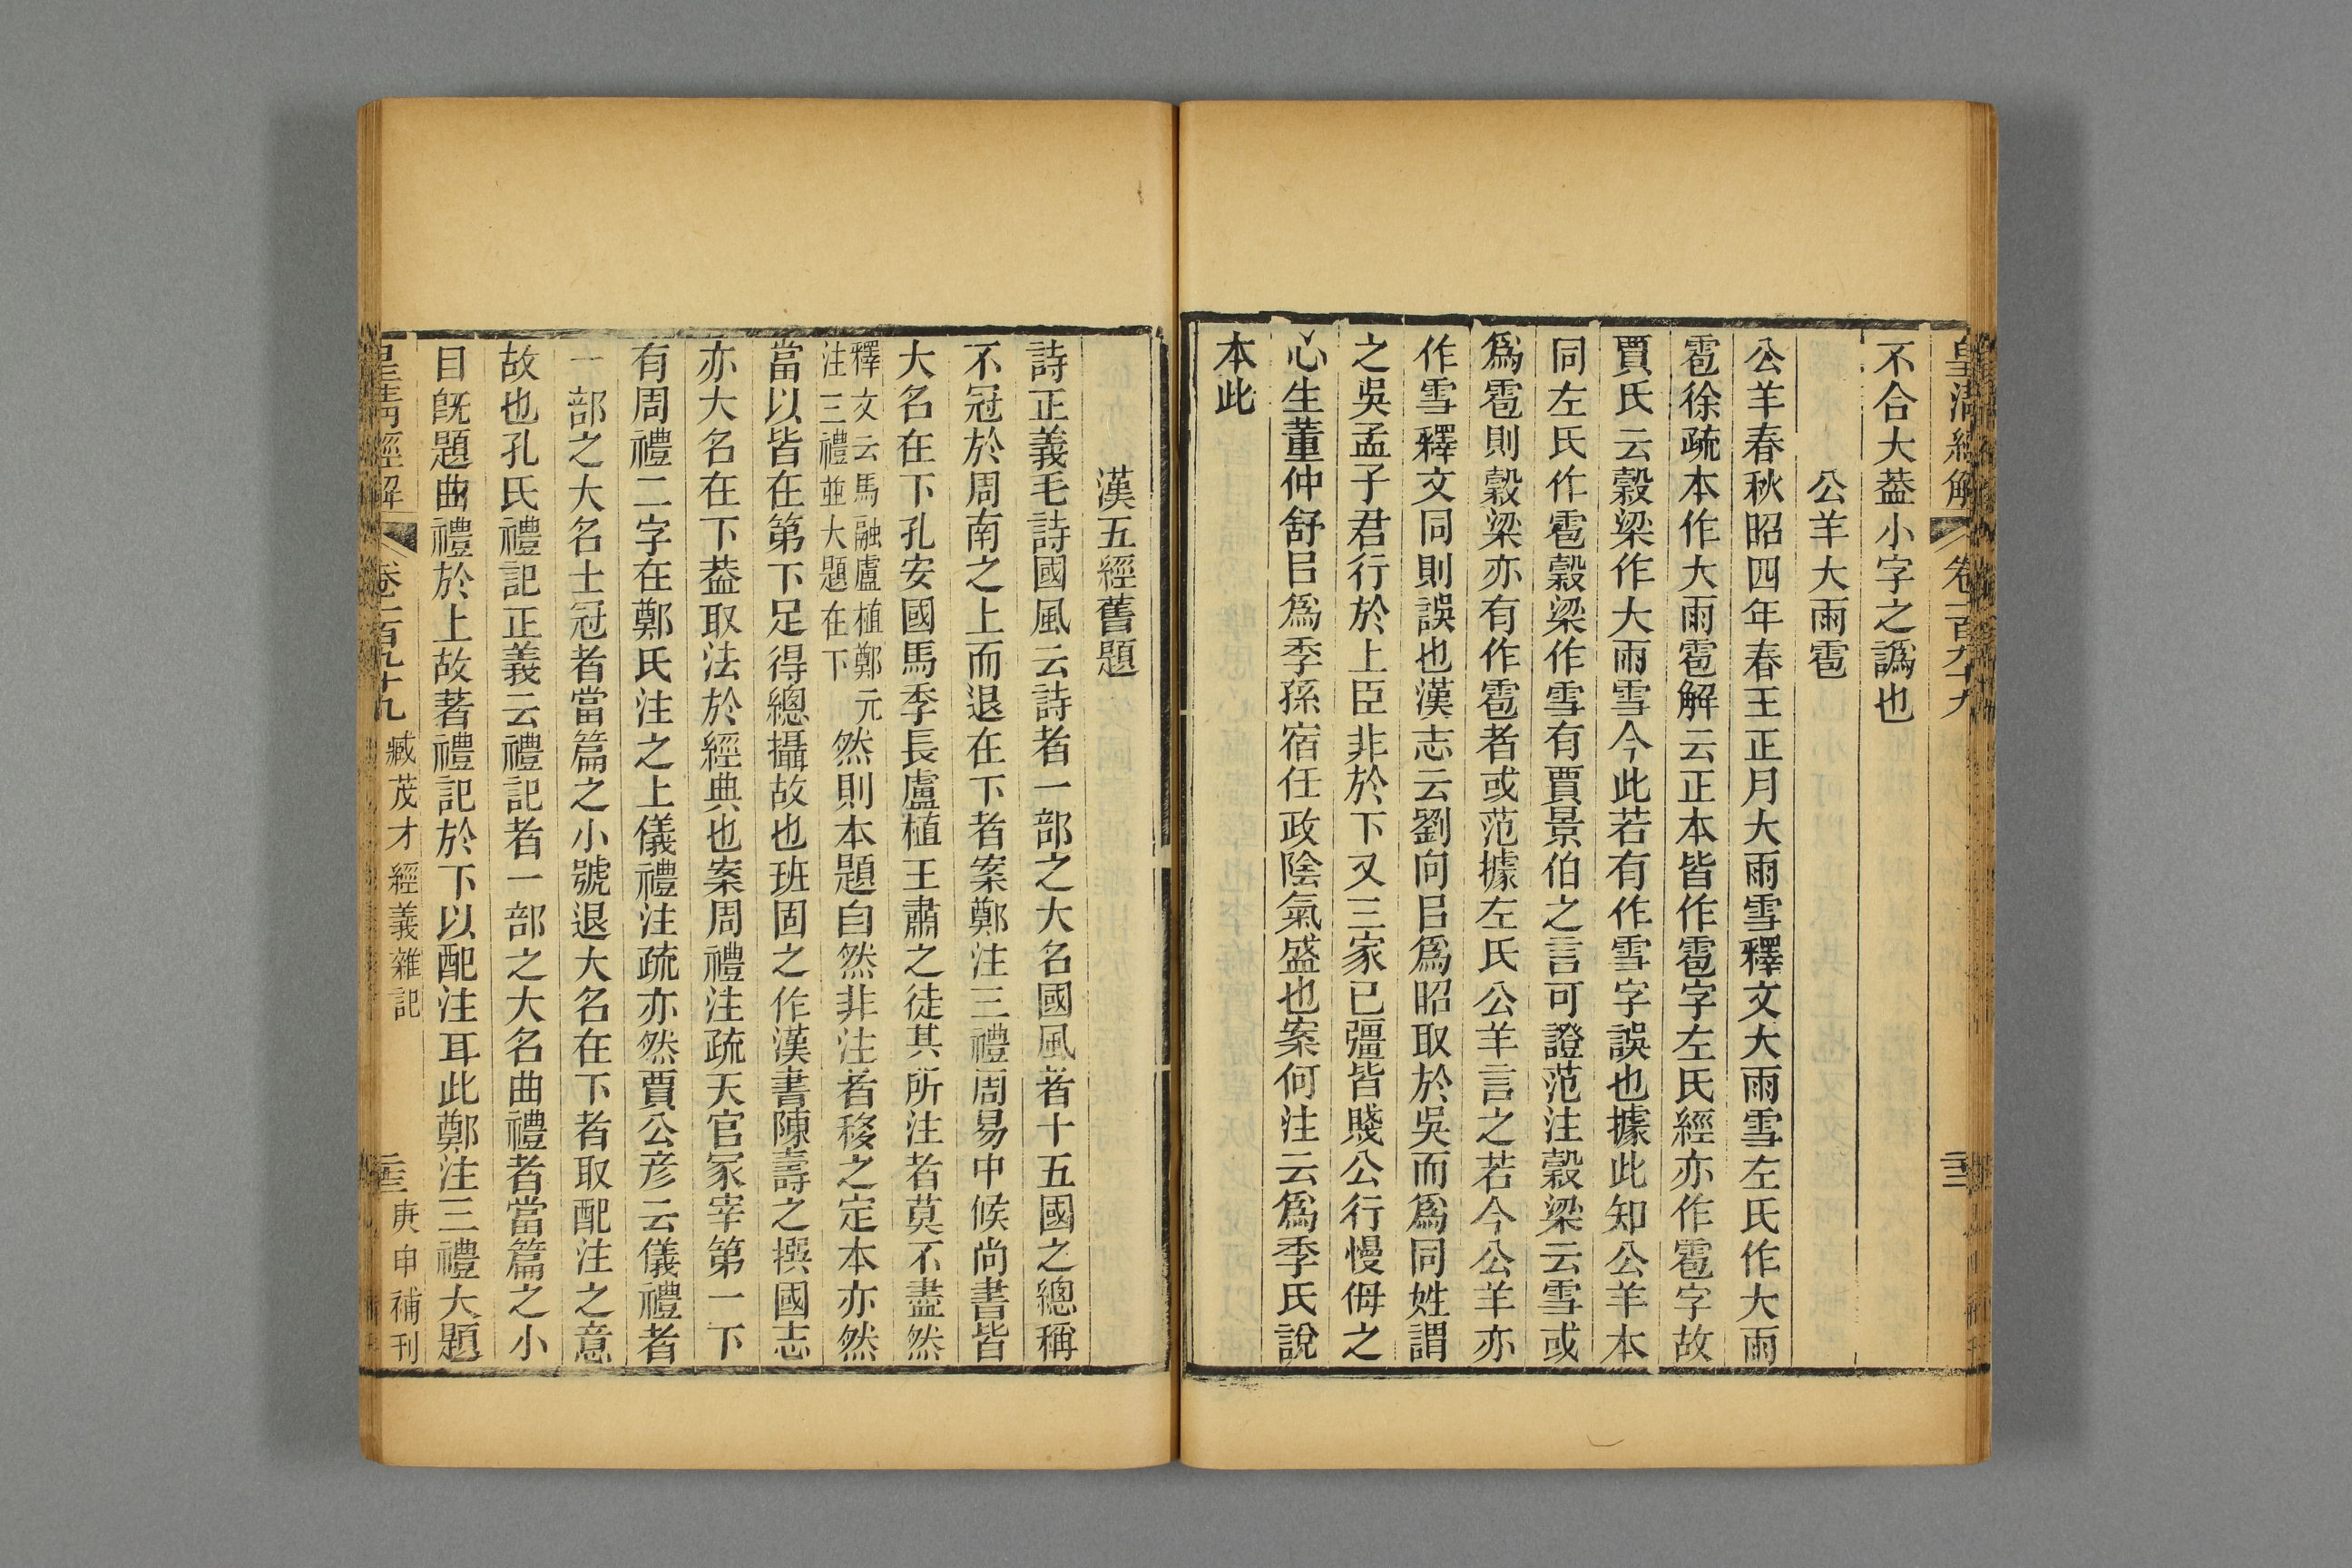 不合大葢小字之譌也
公羊大雨雹
公羊春秋昭四年春王正月大雨雪釋文大雨雪左氏作大雨
雹徐疏本作大雨雹解云正本皆作雹字左氏經亦作雹字故
賈氏云糓梁作大雨雪今此若有作雪字誤也據此知公羊本
同左氏作雹糓梁作雪有賈景伯之言可證范注糓梁云雪或
爲雹則糓梁亦有作雹者或范據左氏公羊言之若今公羊亦
作雪釋文同則誤也漢志云劉向㠯爲昭取於吳而爲同姓謂
之吳孟子君行於上臣非於下又三家已彊皆賤公行慢侮之
心生董仲舒㠯爲季孫宿任政陰氣盛也案何注云爲季氏說
本此
漢五經舊題
詩正義毛詩國風云詩者一部之大名國風者十五國之總稱
不冠於周南之上而退在下者案鄭注三禮周易中候尚書皆
大名在下孔安國馬季長盧植王肅之徒其所注者莫不盡然
釋文云馬融盧植鄭元
注三禮並大題在下
然則本題自然非注者移之定本亦然
當以皆在第下足得總攝故也班固之作漢書陳壽之撰國志
亦大名在下葢取法於經典也案周禮注疏天官冢宰第一下
有周禮二字在鄭氏注之上儀禮注疏亦然賈公彦云儀禮者
一部之大名士冠者當篇之小號退大名在下者取配注之意
故也孔氏禮記正義云禮記者一部之大名曲禮者當篇之小
目旣題曲禮於上故著禮記於下以配注耳此鄭注三禮大題
皇淸經解
卷二百九十九
臧茂才經義雜記
庚申補刊